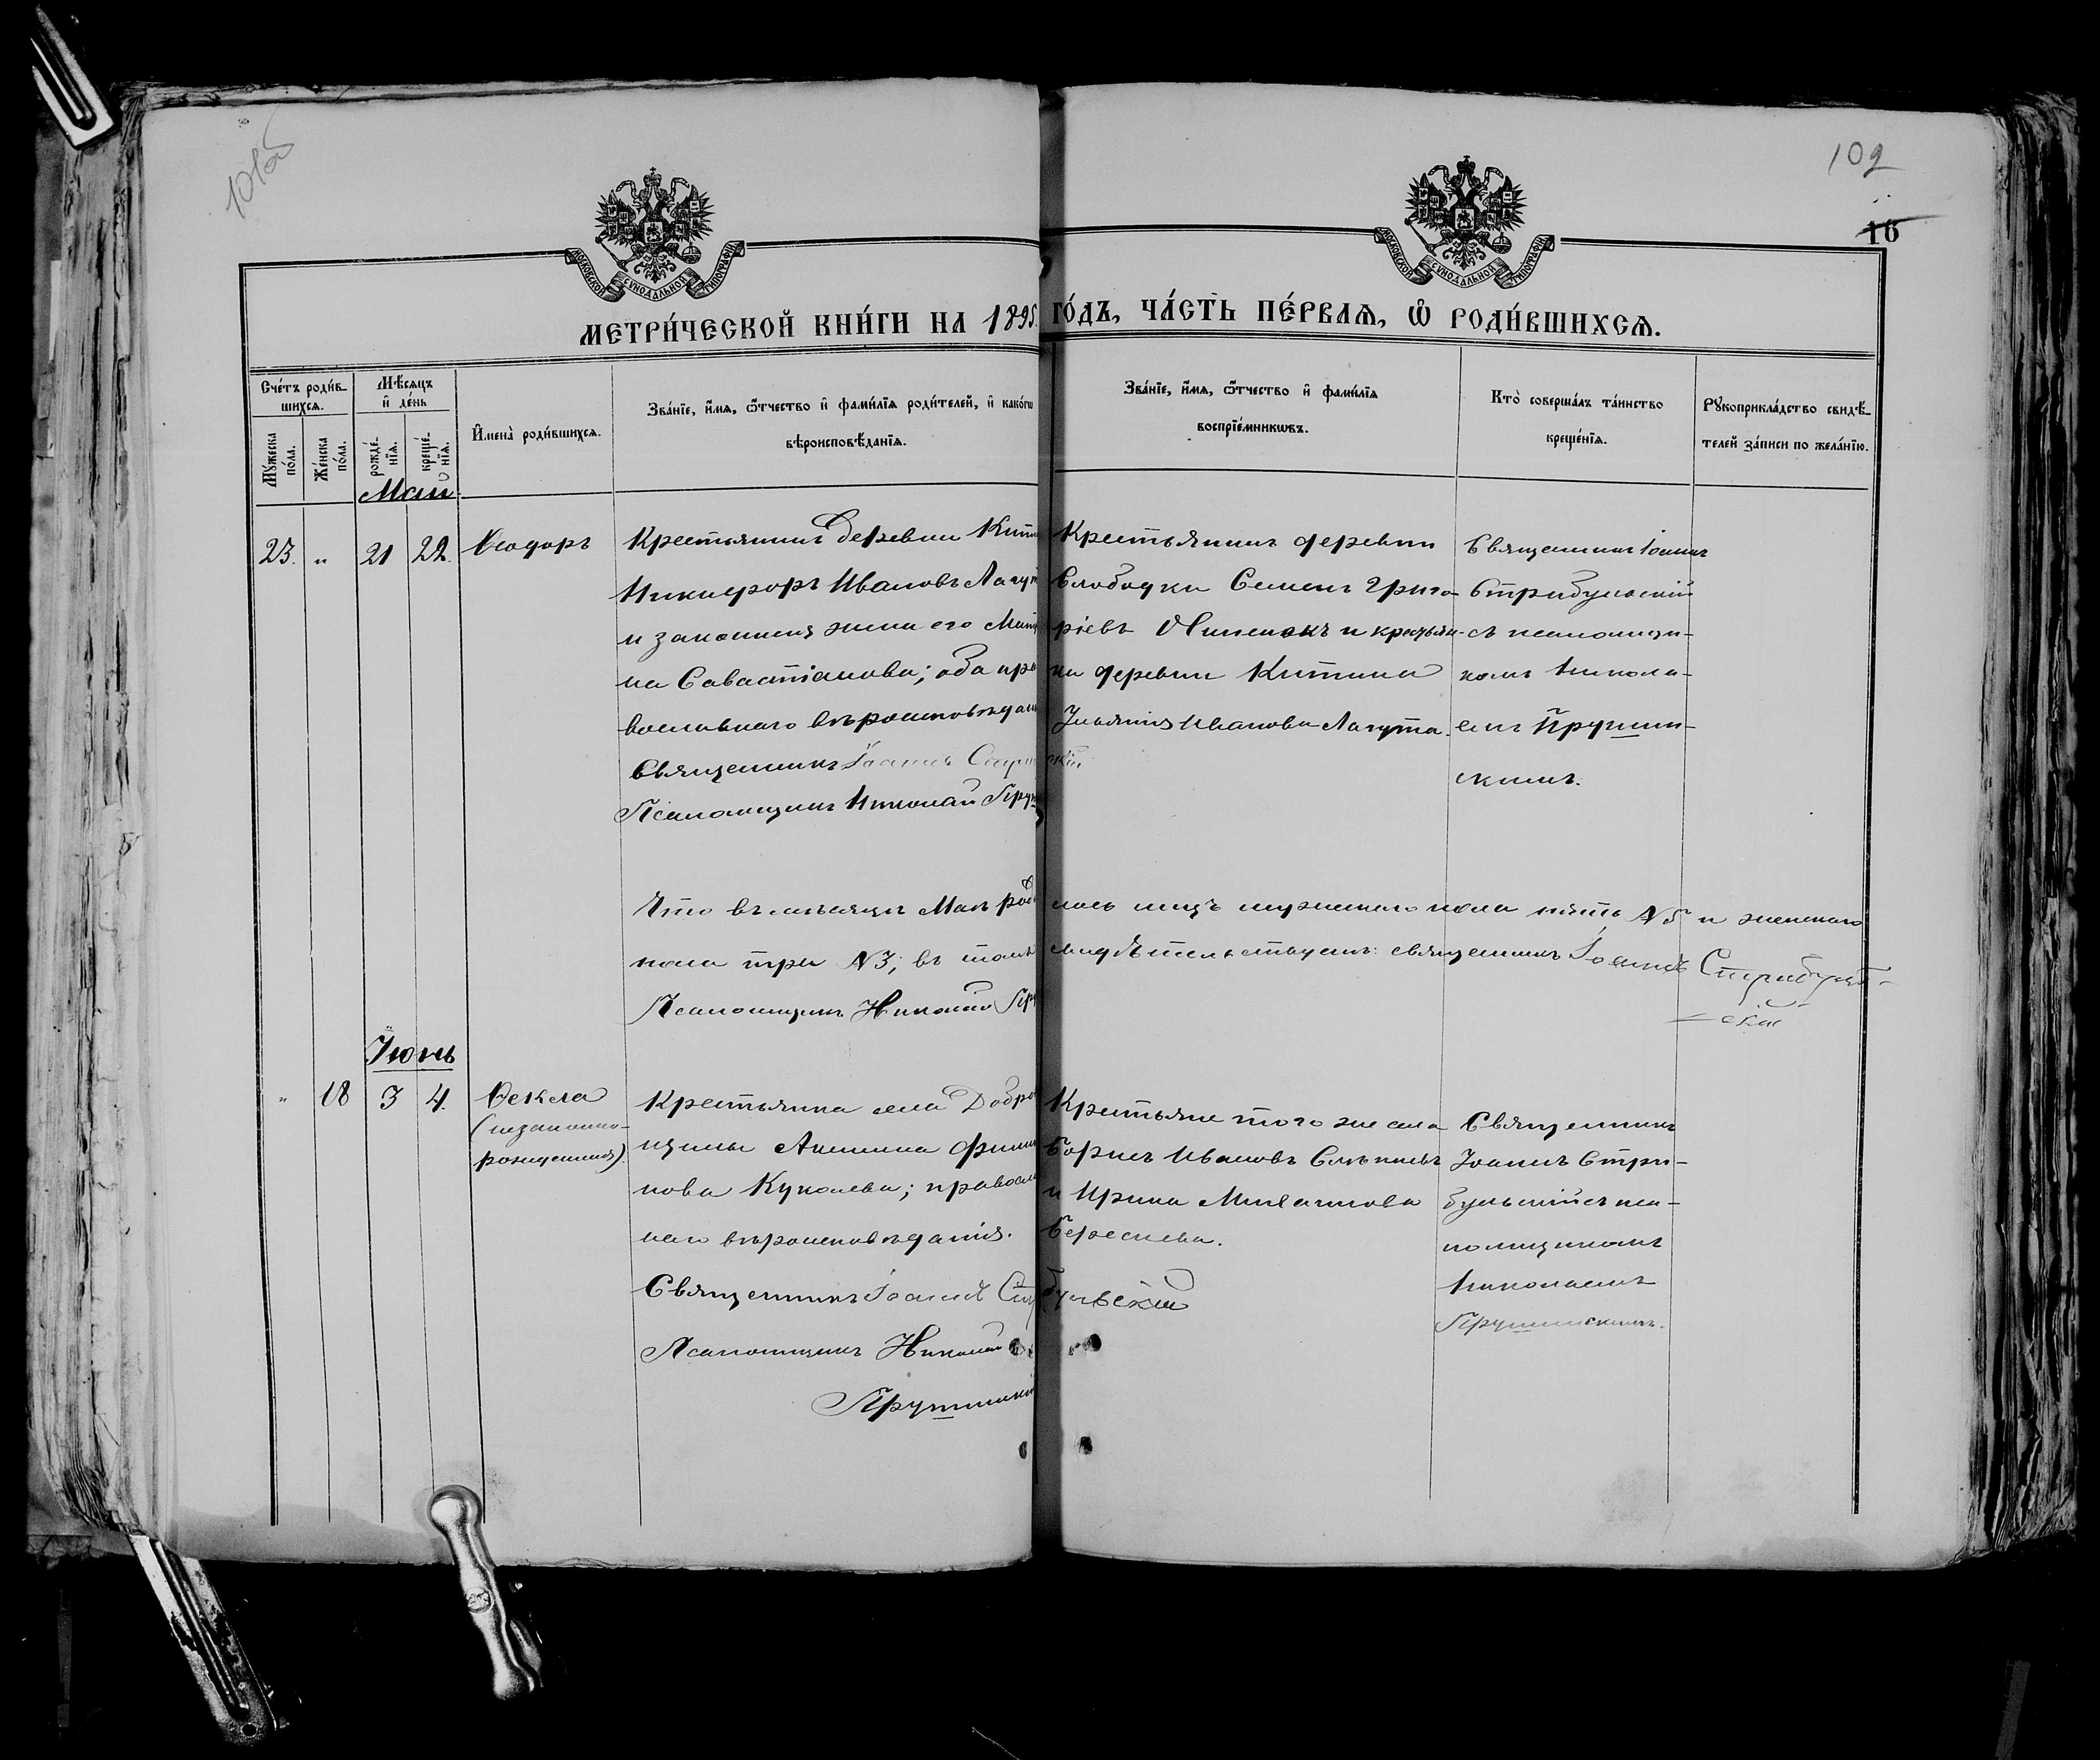 101об
102
16
МОСКОВСКОЙ СѴНОДАЛЬНОЙ ТИПОГРАФІИ
МОСКОВСКОЙ СѴНОДАЛЬНОЙ ТИПОГРАФІИ
МЕТРИ́ЧЕСКОЙ КНИ́ГИ НА 1895. ГО́ДЪ, ЧА́СТЬ ПЕ́РВАѦ, Ѡ҆ РОДИ́ВШИХСѦ.
Сче́тъ роди́в-
шихсѧ.
Мѣ́сѧцъ
и҆ де́нь
Мꙋ́жеска
по́ла.
Же́нска
по́ла.
рожде́-
нїѧ.
креще́-
нїѧ.
И҆мена̀ роди́вшихсѧ.
Зва́нїе, и҆́мѧ, ѻ҆́тчество и҆ фами́лїѧ роди́телей, и҆ како́гѡ
вѣроисповѣ́данїѧ.
Зва́нїе, и҆́мѧ, ѻ҆́тчество и҆ фами́лїѧ
воспрїе́мникѡвъ.
Кто̀ соверша́лъ та́инство
креще́нїѧ.
Рꙋкоприкла́дство свидѣ́-
телей за́писи по жела́нїю.
Май
23. " 21 22. Ѳеодоръ
Крестьянинъ деревни
Никифоръ Ивановъ Лагут
и законная жена его
на Савастіанова; оба пра
вославнаго вѣроисповѣдан
Священникъ Іоаннъ
Псаломщикъ Николай
Крестьянинъ деревни
Слободки Семенъ Григо-
ріевъ и крестьян-
ка деревни Китина
Ивановна Лагута.
скій
Священникъ Іоаннъ
Стрибульскій
съ псаломщи-
комъ Никола-
емъ Прушин-
скимъ.
Что въ мѣсяцѣ Маѣ роди лось лицъ мужескаго пола пять N 5 и женскаго
пола три N 3; въ томъ свидѣтельствуемъ: священникъ Іоаннъ Стрибуль-
скій
Псаломщикъ Николай
Іюнь
" 18 3 4. Ѳекла
(незаконно-
рожденная).
Крестьянка села Добро
щины Акилина Филип
пова Куколева; правосла
наго вѣроисповѣданія.
Священникъ Іоаннъ Стри бульскій
Псаломщикъ Николай
Прушинскій
Крестьяне того же села
Борисъ Ивановъ
и Ирина Михаилова
Береснева.
Священникъ
Іоаннъ Стри-
бульскій съ пса-
ломщикомъ
Николаемъ
Прушинскимъ.